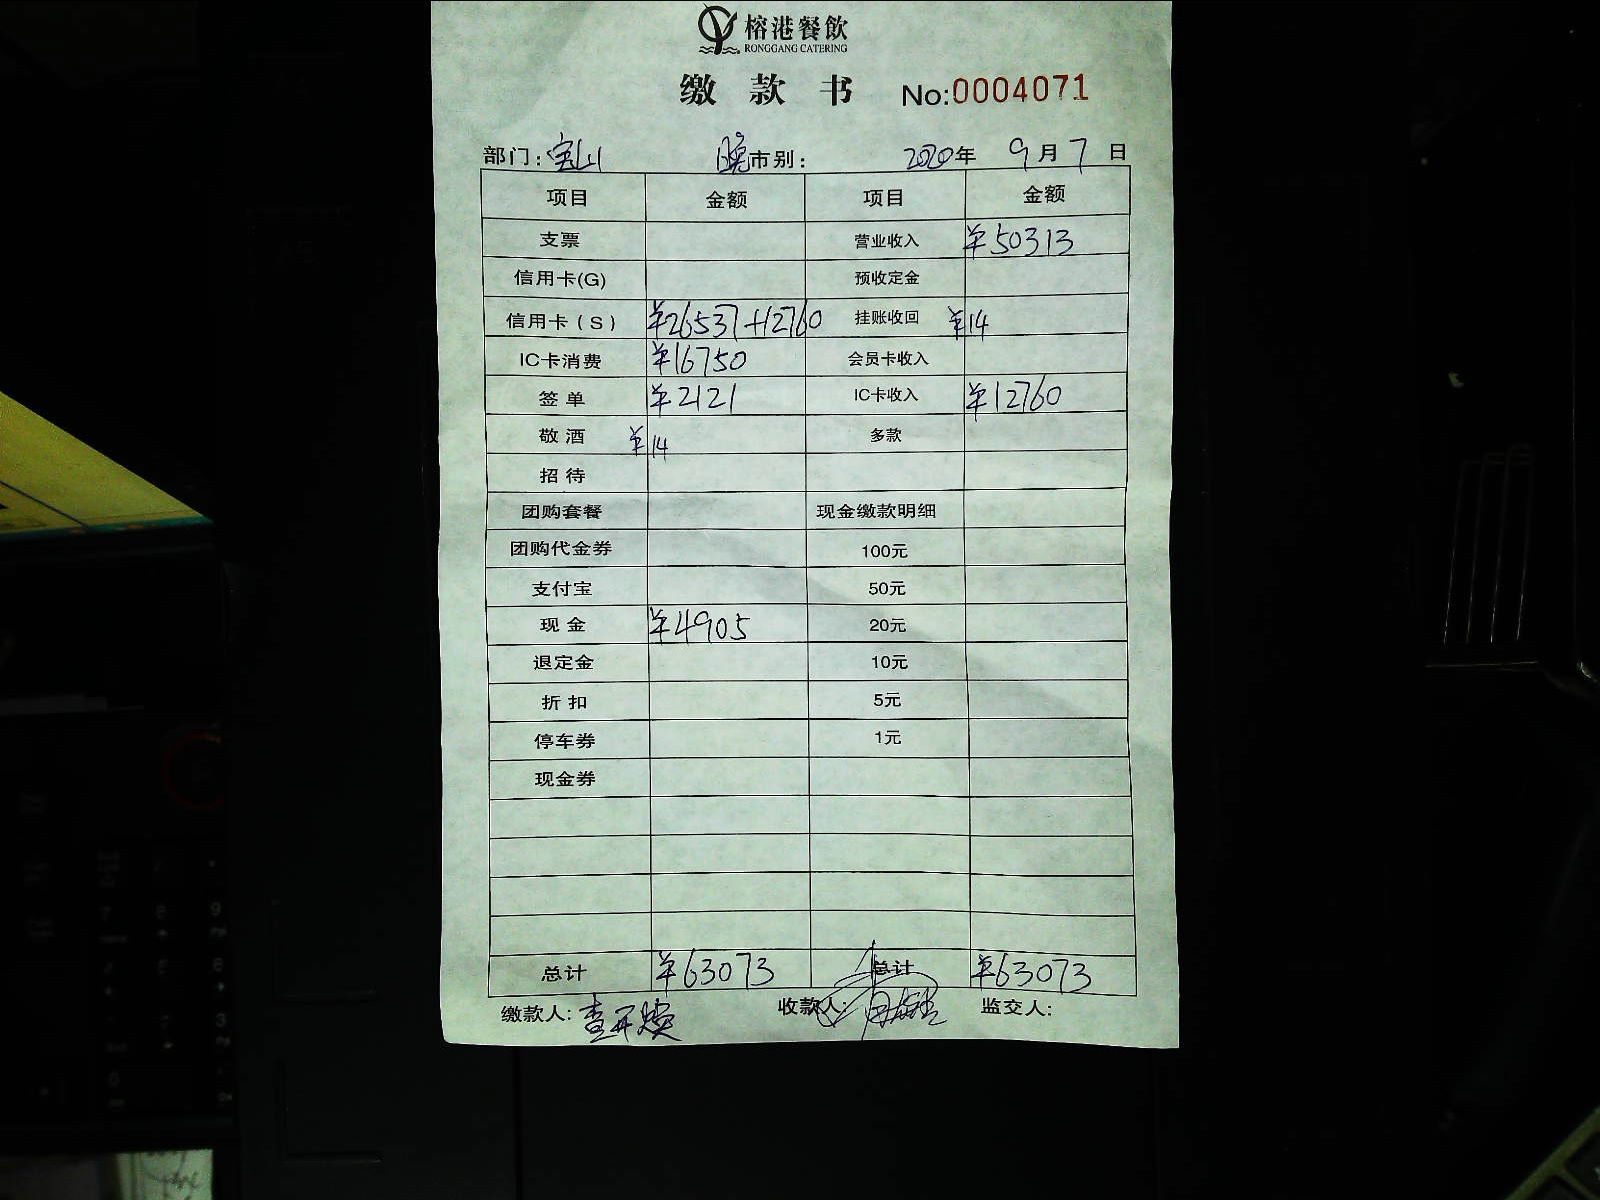 榕港餐飲
RONGGANG CATERING
缴 款 书 No:0004071
部门: 宝山 晚市别: 2020年 9月7日
项目 金额 项目 金额
支票 营业收入 ¥50313
信用卡(G) 预收定金
信用卡(S) ¥26537+12760 挂账收回 ¥14
IC卡消费 ¥16750 会员卡收入
签单 ¥2121 IC卡收入 ¥12760
敬酒 ¥14 多款
招待
团购套餐 现金缴款明细
团购代金券 100元
支付宝 50元
现金 ¥4905 20元
退定金 10元
折扣 5元
停车券 1元
现金券
总计 ¥63073 总计 ¥63073
缴款人: 收款人: 监交人: